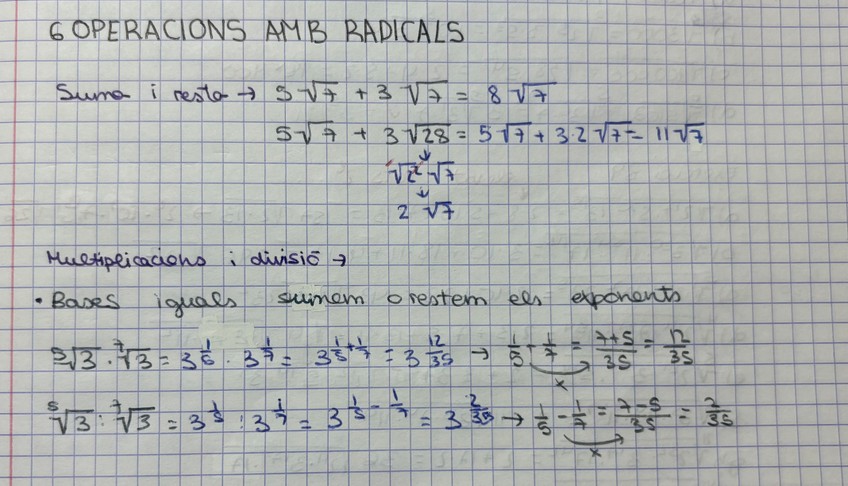 6 OPERACIONS AMB RADICALS
Suma i resta → 5√7 + 3√7 = 8√7
5√7 + 3√28 = 5√7 + 3·2√7 = 11√7
↓
√2² √7
↓
2 √7
Multiplicacions i divisió →
• Bases iguals sumem o restem els exponents
⁵√3 · ⁷√3 = 3^(1/5) · 3^(1/7) = 3^(1/5+1/7) = 3^(12/35) → 1/5 + 1/7 = (7+5)/35 = 12/35
x
⁵√3 : ⁷√3 = 3^(1/5) : 3^(1/7) = 3^(1/5-1/7) = 3^(2/35) → 1/5 - 1/7 = (7-5)/35 = 2/35
x